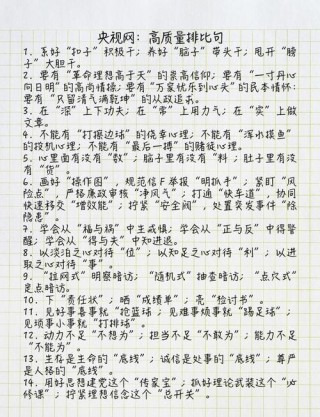 央视网：高质量排比句
1. 系好“扣子”积极干；养好“脑子”带头干；甩开“膀
子”大胆干。
2. 要有“革命理想高于天”的崇高信仰；要有“一寸丹心
向日明”的高尚情操；要有“万家忧乐到心头”的民本情怀；
要有“只留清气满乾坤”的从政追求。
3. 在“深”上下功夫；在“常”上用力气；在“实”上做
文章。
4. 不能有“打擦边球”的侥幸心理；不能有“浑水摸鱼”
的投机心理；不能有“最后一搏”的赌徒心理。
5. 心里面有没有“数”；脑子里有没有“料”；肚子里有没
有“货”。
6. 画好“操作图”，规范信F举报“明扒手”；紧盯“风
险点”，严格廉政审核“净风气”；打通“快车道”，协同
快速移交“增效能”；拧紧“安全阀”，处置突发事件“除
隐患”。
7. 学会从“福与祸”中主戒惧；学会从“正与反”中得警
醒；学会从“得与失”中知进退。
8. 以淡泊之心对待“位”；以知足之心对待“利”；以进
取之心对待“事”。
9. “拉网式”明察暗访；“随机式”抽查暗访；“点穴式”
定点暗访。
10. 下“责任状”；晒“成绩单”；亮“检讨书”。
11. 见好事喜事就“抢篮球；见难事烦事就“踢足球”；
见琐事小事就“打排球”。
12. 动力不足“不想为”；担当不足“不敢为”；能力不足
“不能为”。
13. 生存是生命的“底线”；诚信是处事的“底线”；尊严
是人格的“底线”。
14. 用好思想建党这个“传家宝”；抓好理论武装这个“必
修课”；拧紧理想信念这个“总开关”。